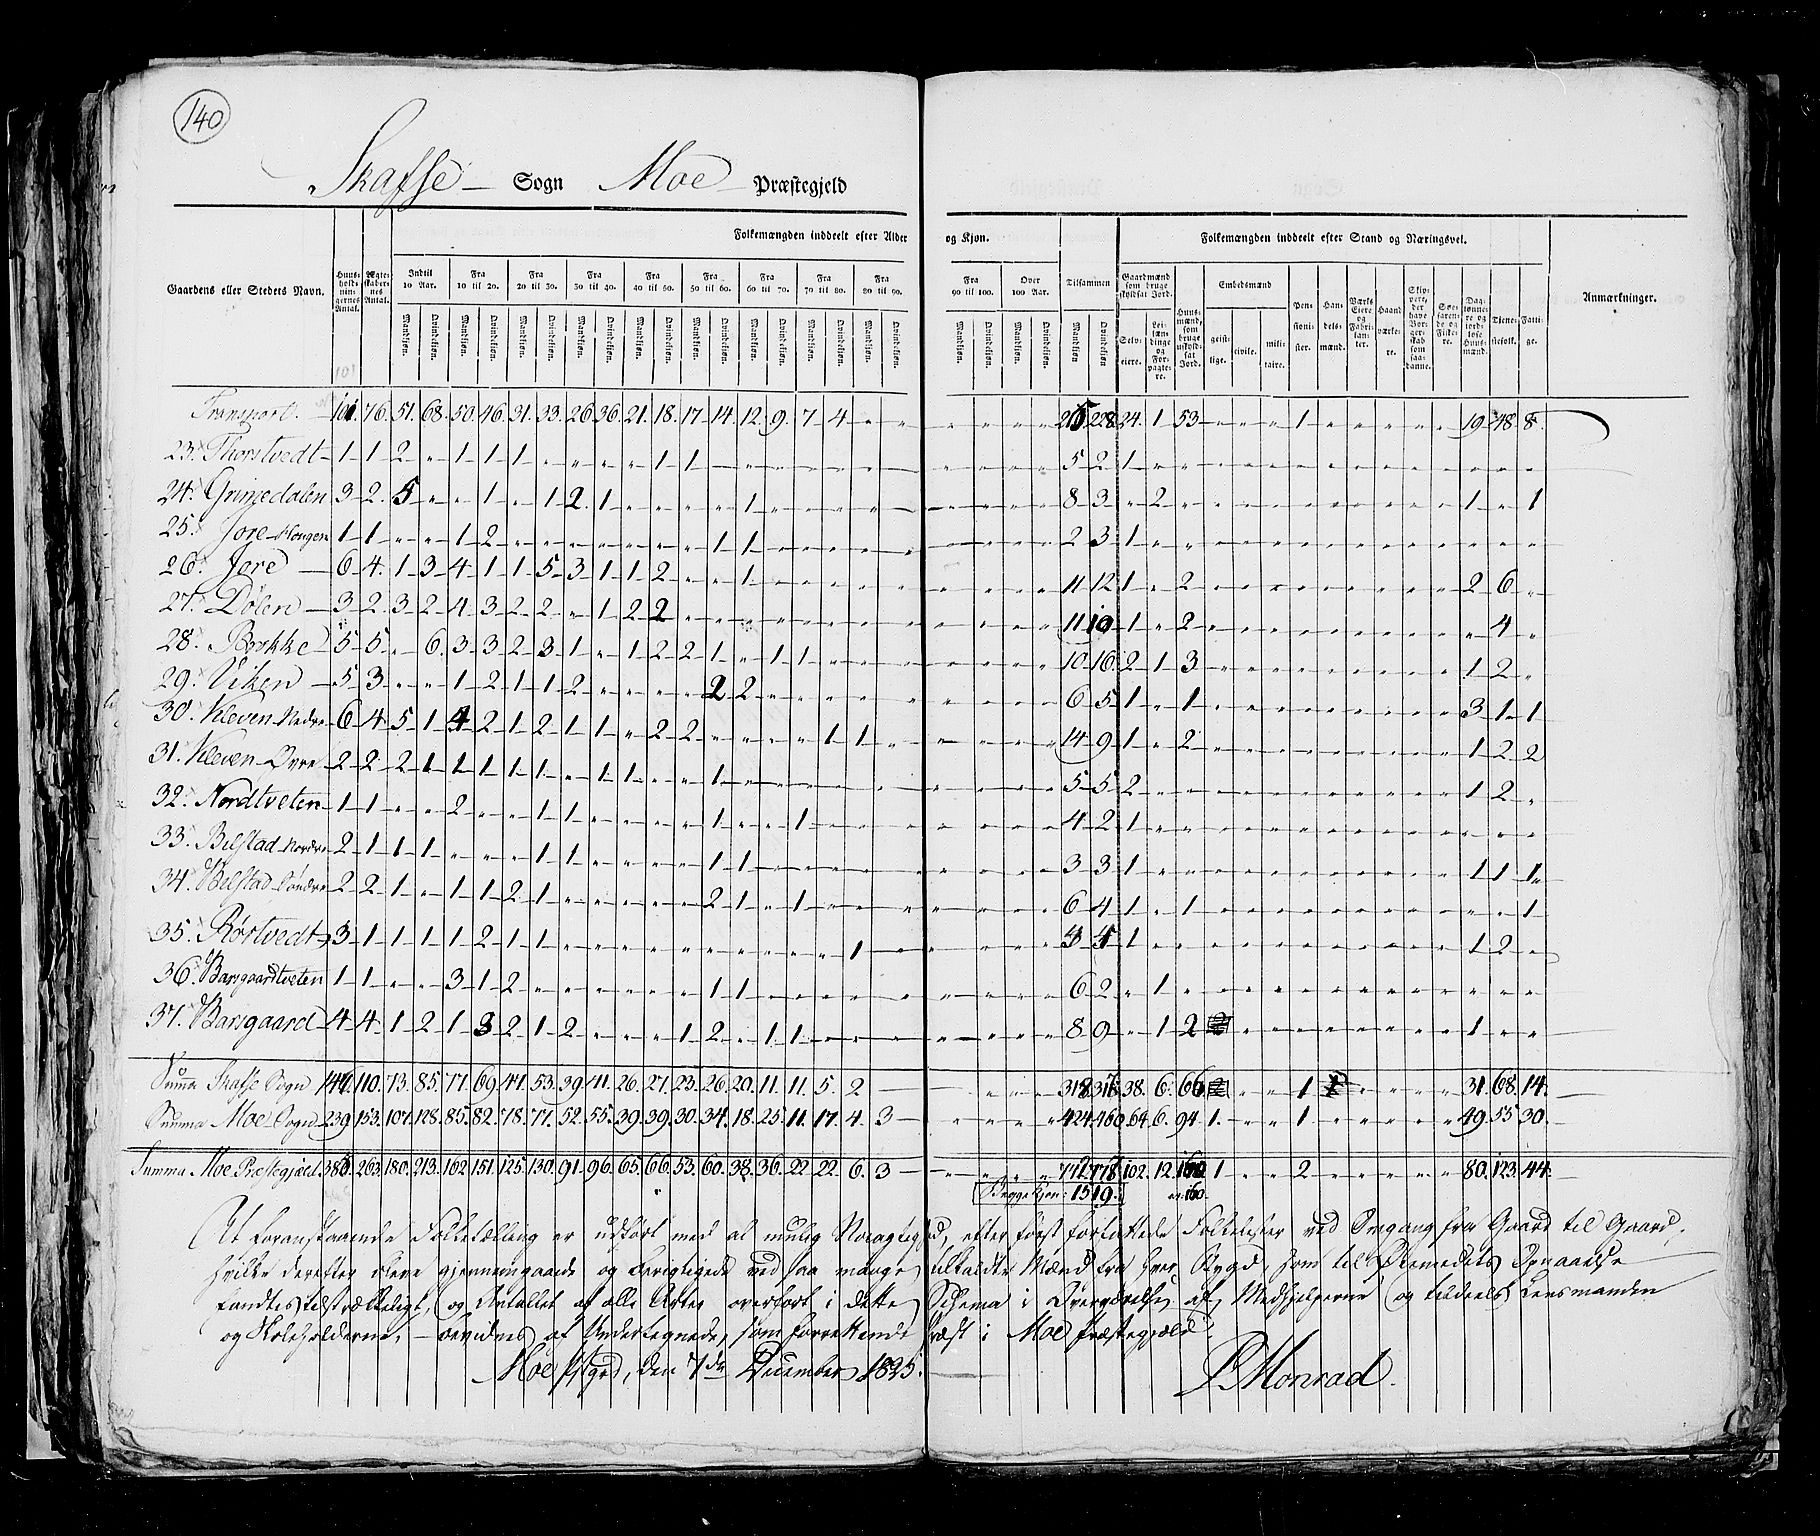 140
Skafse Sogn Moe Præstegjeld
Folkemængden inddeelt efter Alder og Kjøn. Folkemængden inddeelt efter Stand og Næringsvei.
Gaardens eller Stedets Navn. Huusholdningernes Antal. Ægteskabernes Antal. Indtil 10 Aar. Fra 10 til 20. Fra 20 til 30. Fra 30 til 40. Fra 40 til 50. Fra 50 til 60. Fra 60 til 70. Fra 70 til 80. Fra 80 til 90. Fra 90 til 100. Over 100 Aar. Tilsammen Gaardmænd som bruge skyldsat Jord. Huusmænd, som bruge uskyldsat Jord. Embedsmænd Pensionister. Handelsmænd. Værks Eiere og Fabrikanter. Haandværkere. Skippere, der have Borgerskab som saadanne. Søefarende og Fiskere. Daglønnere og jordløse Huusmænd. Tjenestefolk. Fattige. Anmærkninger.
Mandkjøn. Qvindekjøn. Mandkjøn. Qvindekjøn. Mandkjøn. Qvindekjøn. Mandkjøn. Qvindekjøn. Mandkjøn. Qvindekjøn. Mandkjøn. Qvindekjøn. Mandkjøn. Qvindekjøn. Mandkjøn. Qvindekjøn. Mandkjøn. Qvindekjøn. Mandkjøn. Qvindekjøn. Mandkjøn. Qvindekjøn. Mandkjøn Qvindekjøn. Selveiere. Leilændinge og Forpagtere. geistlige. civile. militaire.
101
Transport. 101. 76. 51. 68. 50. 46. 31. 33. 26. 36. 21. 18. 17. 14. 12. 9. 7. 4 " " " " " " 215 228. 24. 1 53 " " " 1 " " " " " 19 48. 8.
23. Thorstvedt 1 1 2 " 1 1 1 " " " " 1 1 " " " " " " " " " " " 5 2 1
24. Grimedalen 3 2. 5 " " 1 " 1 2. 1 " " " " 1 " " " " " " " " " 8 3 " 2 " " " " " " " " " " 1 " 1
25. Jore Haugen 1 1 " " 1 2 " " " " " " " 1 1 " " " " " " " " " 2 3 1
26. Jore 6 4. 1 3 4 1 1 5 3 1 1 2 " " 1 " " " " " " " " " 11 12 1 " 2 " " " " " " " " " 2 6 "
27. Dølen 3 2 3 2 4 3 2 2 " 1 2 2 " " " " " " " " " " " " 11 10 1 " 2 " " " " " " " " " " 4 "
28. Brokke 5 5. " 6. 3 3 2 3 1 " 1 2 2 1 " 1 1 " " " " " " " 10 16. 2 1 3 " " " " " " " " " 1 2 "
29. Viken 5 3 " " 1 2 1 1 2 " " " " 2 2 " " " " " " " " " 6 5 1 " 1 " " " " " " " " " 3 1 1
30. Kleven Nedre 6 4 5 1 4 2 1 2 1 1 " 2 2 " " " " 1 1 " " " " " 14 9 1 " 2 " " " " " " " " " 1 2 2
31. Kleven Øvre 2 2 2 1 1 1 1 1 " 1 1 " " 1 " " " " " " " " " " 5 5 2 " " " " " " " " " " " 1 2 "
32. Nordtveten 1 1 " " 2 " " 1 1 " " " " 1 " " 1 " " " " " " " 4 2 1
33. Bilstad Nordre 2 1 1 1 " " " 1 1 " " " " 1 1 " " " " " " " " " 3 3 1 " " " " " " " " " " " 1 1 1
34. Bilstad Søndre 2 2 1 " 1 1 2 1 " " " " " 2 1 " 1 " " " " " " " 6 4 1 " 1 " " " " " " " " " " " 1
35. Rørtvedt 3 1 1 1 1 2 1 1 " " " " " " " " " " 1 " " " " " 4 4 1 " " " " " " " " " " " 1 2 "
36. Barsgaardtveten 1 1 " " 3 1 2 " " " " " " 1 1 " " " " " " " " " 6 2 " 1
37. Barsgaard 4 4 1 2 1 3 2 1 2 " " " 1 2 " 1 1 " " " " " " " 8 9 " 1 2 " " " " " " " " " 1 " "
Suma Skafse Sogn 146 110. 73. 85. 77. 69. 47. 53. 39. 41. 26. 27. 23. 26. 20. 11. 11. 5. 2 318 318 38. 6. 66 " " 1 " " " " 31. 68. 14.
Summa Moe Sogn 239. 153. 107. 128. 85. 82. 78. 77. 52. 55. 39. 39. 30. 34. 18. 25. 11. 17. 4. 3 424. 460. 64 6. 94 1. " " 1 " " " " " 49. 55 30.
Summa Moe Præstegjæld 385. 263. 180. 213. 162. 151. 125. 130. 91. 96. 65. 66. 53. 60. 38. 36. 22. 22. 6. 3 742. 778. 102. 12. 160 1 " " 2 " " " " " 80. 123. 44.
Begge Kjøn: 1519. 160.
At foranstaaende Folketælling er udført med al mulig Nøiagtighed, efter først forfattede Folkelister ved Omgang fra Gaard til Gaard,
hvilke derefter bleve gjennemgaaede og berigtigede ved saa mange tilkaldte Mænd fra hver Bygd, som til Øiemedets Opnaaelse
fandtes tilstrækkeligt, og Antallet af alle Arter overført i dette Schema i Overværelse af Medhjelperne og tildeels Lensmanden
og Skoleholderne, bevidnes af Undertegnede, som forrettende Præst i Moe Præstegjæld.
Moe Pstgrd, den 7de December 1825.
P. Monrad.